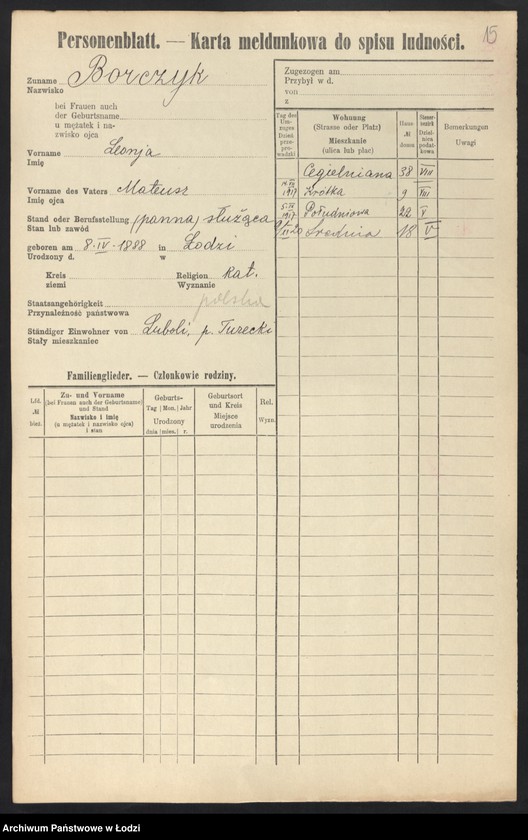 15
Personenblatt. — Karta meldunkowa do spisu ludności.
Zuname Borczyk
Nazwisko
bei Frauen auch
der Geburtsname
u mężatek i na-
zwisko ojca
Vorname Leonja
Imię
Vorname des Vaters Mateusz
Imię ojca
Stand oder Berufsstellung (panna) służąca
Stan lub zawód
geboren am 8·IV·1888 in Łodzi
Urodzony d. w
Kreis Religion kat.
ziemi Wyznanie
Staatsangehörigkeit polska
Przynależność państwowa
Ständiger Einwohner von Luboli, p. Turecki
Stały mieszkaniec
Zugezogen am
Przybył w d.
von
z
Tag des Um-zuges Dzień prze-pro-wadzki
Wohnung (Strasse oder Platz) Mieszkanie (ulica lub plac)
Haus № domu
Steuer-bezirk Dziel-nica podat-kowa
Bemerkungen Uwagi
Cegielniana 38 VIII
1917 Krótka 9 VIII
1917 Południowa 22 V
Średnia 18 V
Familienglieder. — Członkowie rodziny.
Lfd. № bież.
Zu- und Vorname (bei Frauen auch der Geburtsname) und Stand Nazwisko i imię (u mężatek i nazwisko ojca) i stan
Geburts- Tag | Mon. | Jahr Urodzony dnia | mies. | r.
Geburtsort und Kreis Miejsce urodzenia
Rel. Wyzn.
Archiwum Państwowe w Łodzi